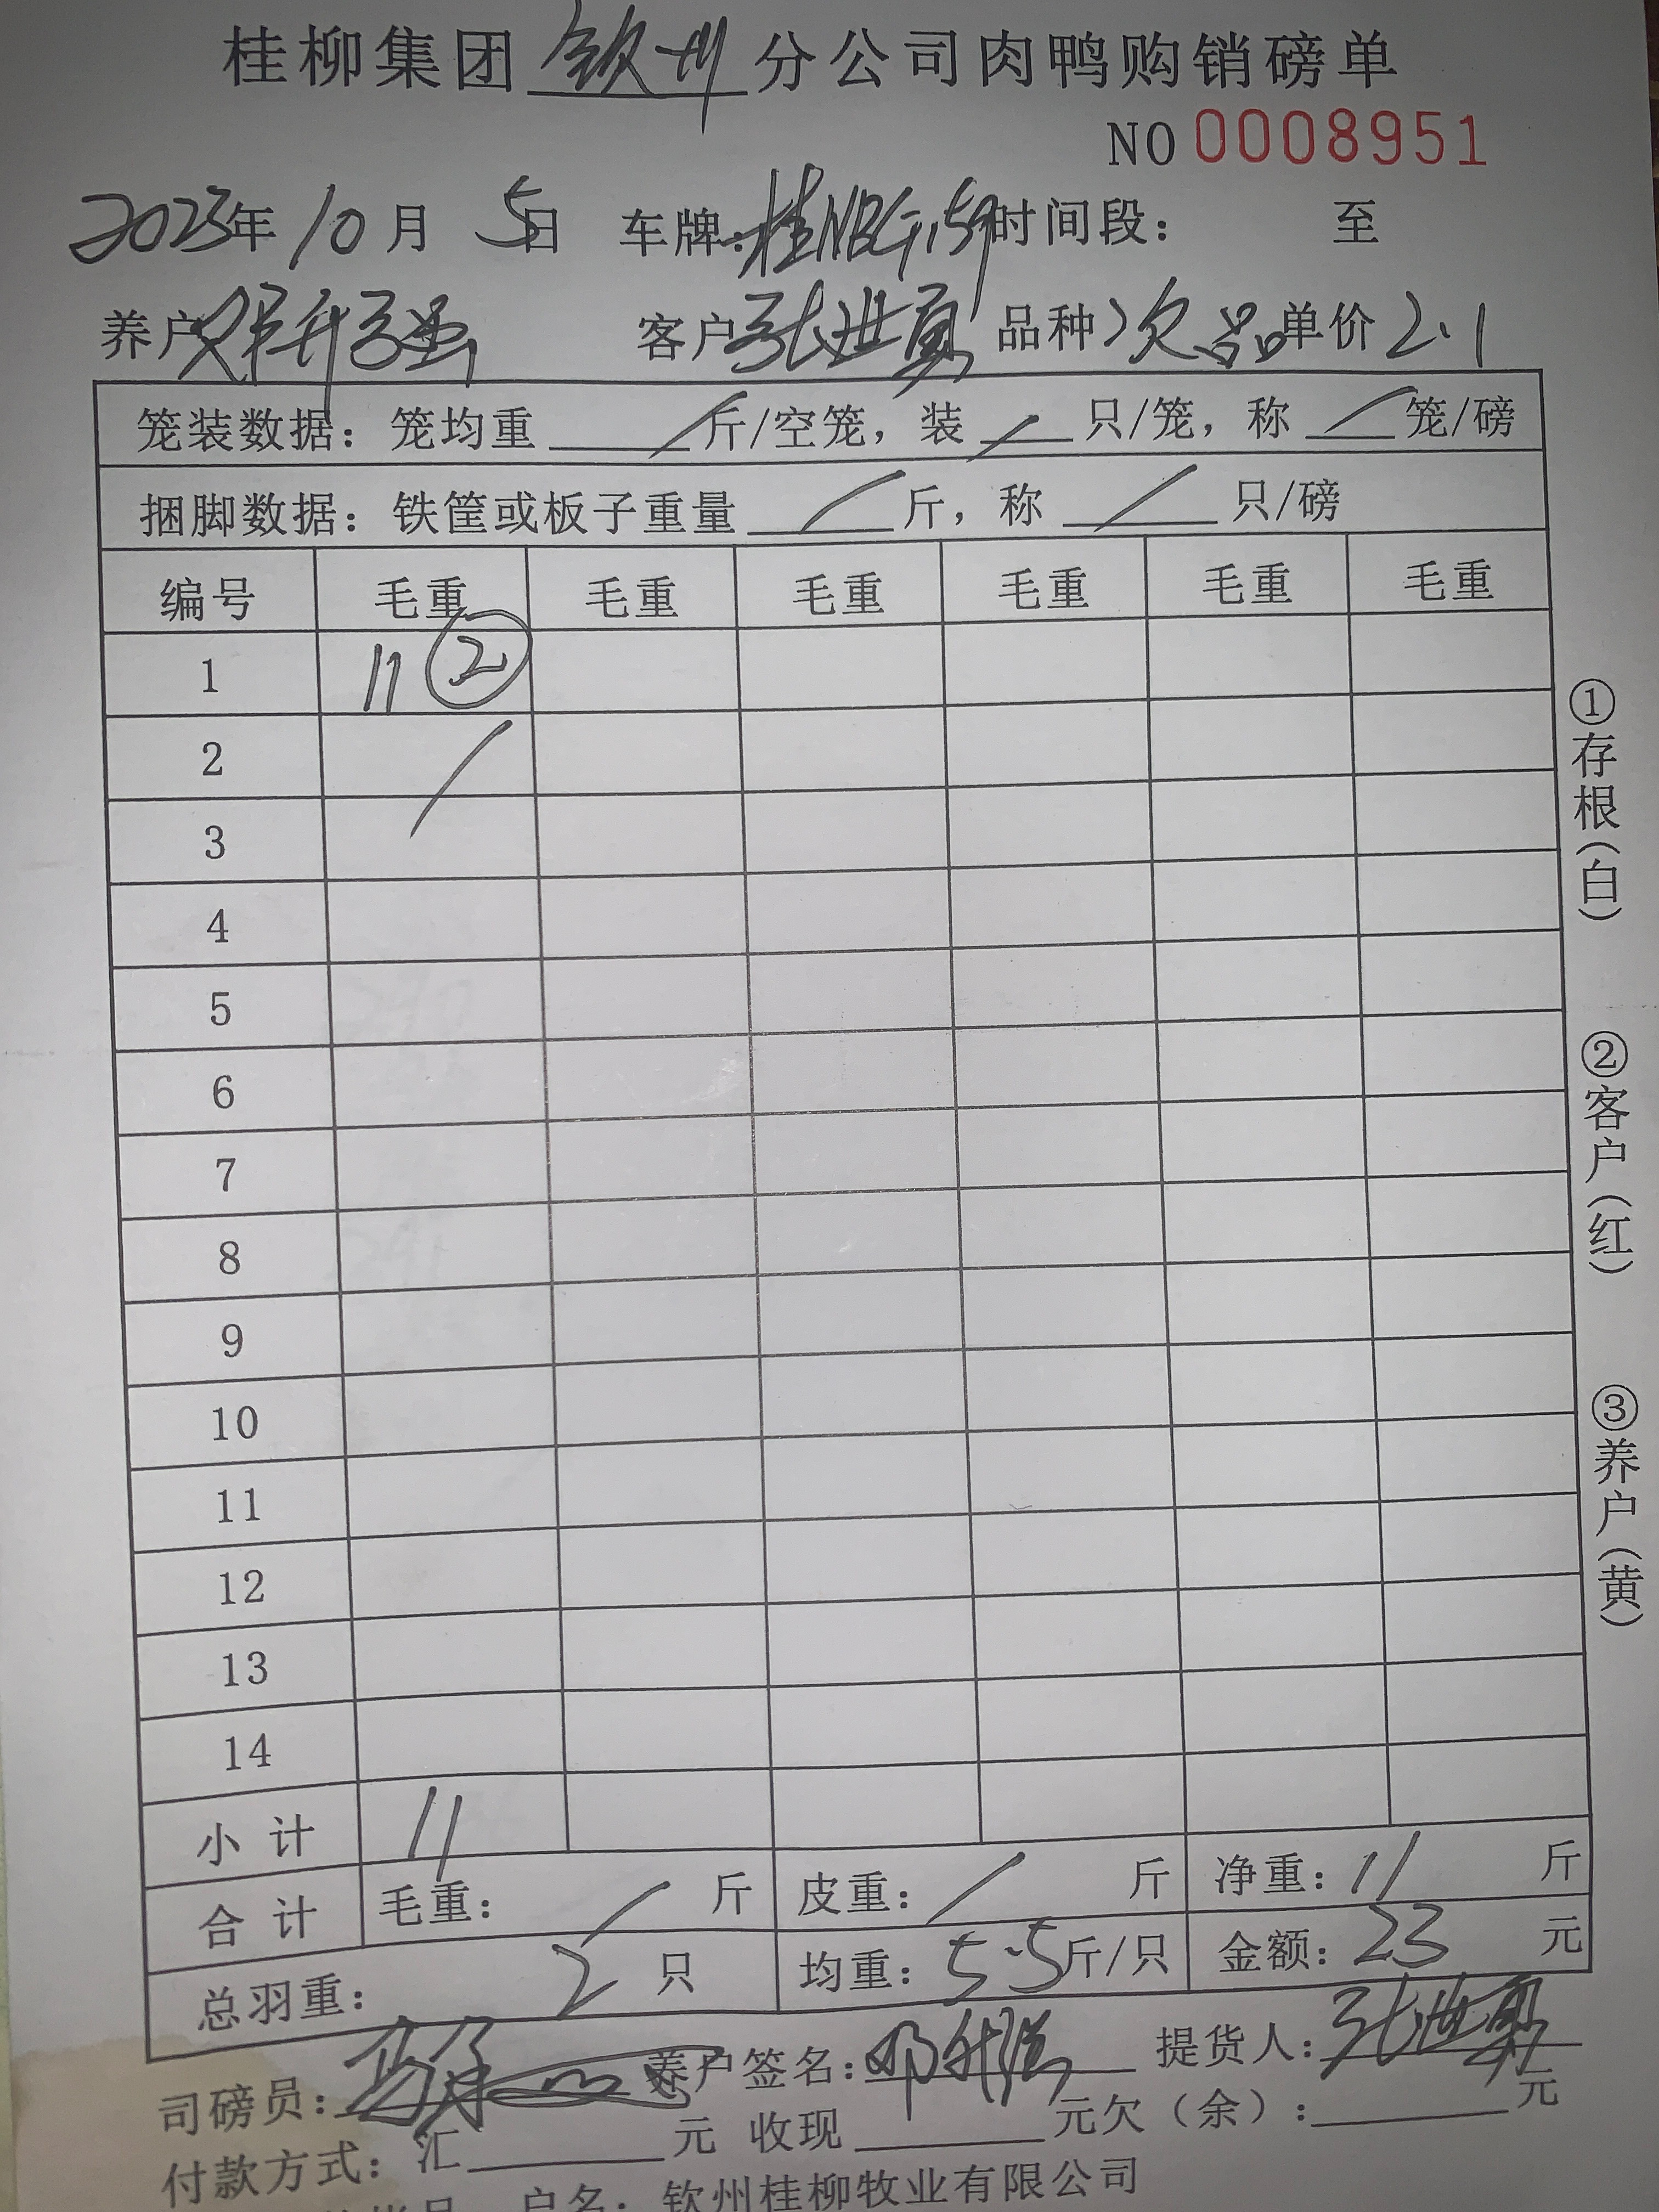 桂柳集团 钦州 分公司肉鸭购销磅单
NO 0008951
2023年 10月 5日 车牌: 时间段: 至
养户 邓升强 客户 张世勇 品种 次品 单价 2.1
笼装数据: 笼均重 / 斤/空笼, 装 / 只/笼, 称 / 笼/磅
捆脚数据: 铁筐或板子重量 / 斤, 称 / 只/磅
编号 毛重 毛重 毛重 毛重 毛重 毛重
1 11 ②
2 /
3
4
5
6
7
8
9
10
11
12
13
14
小计 11
合计 毛重: / 斤 皮重: / 斤 净重: 11 斤
总羽重: 2 只 均重: 5.5 斤/只 金额: 23 元
司磅员: 养户签名: 邓升强 提货人: 张世勇
付款方式: 汇 元 收现 元欠(余): 元
户名: 钦州桂柳牧业有限公司
①存根(白)
②客户(红)
③养户(黄)